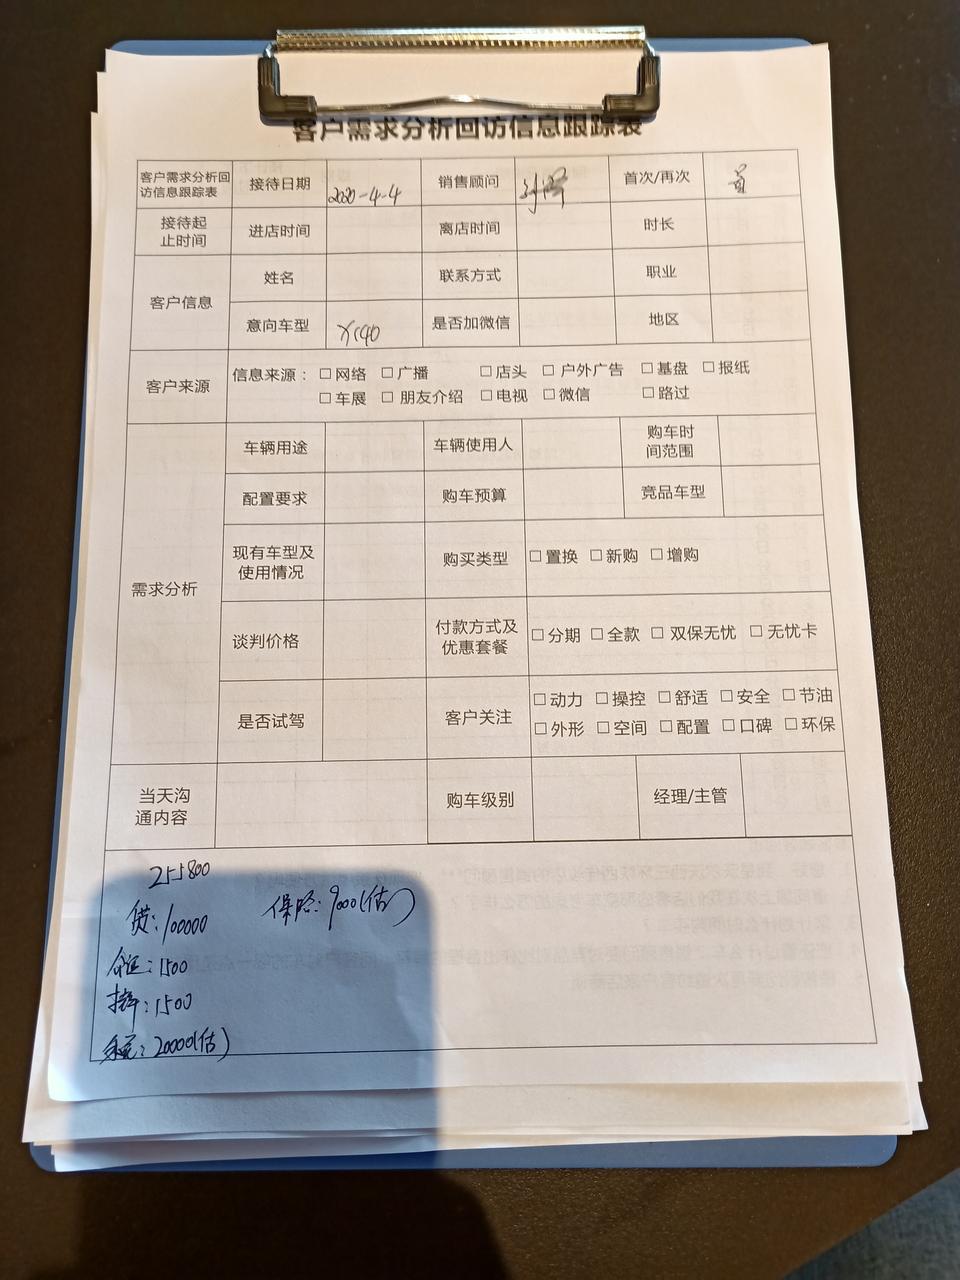 客户需求分析回访信息跟踪表
客户需求分析回访信息跟踪表 接待日期 2020-4-4 销售顾问 首次/再次 首
接待起止时间 进店时间 离店时间 时长
客户信息 姓名 联系方式 职业
意向车型 XC40 是否加微信 地区
客户来源 信息来源： □ 网络 □ 广播 □ 店头 □ 户外广告 □ 基盘 □ 报纸
□ 车展 □ 朋友介绍 □ 电视 □ 微信 □ 路过
需求分析 车辆用途 车辆使用人 购车时间范围
配置要求 购车预算 竞品车型
现有车型及使用情况 购买类型 □ 置换 □ 新购 □ 增购
谈判价格 付款方式及优惠套餐 □ 分期 □ 全款 □ 双保无忧 □ 无忧卡
是否试驾 客户关注 □ 动力 □ 操控 □ 舒适 □ 安全 □ 节油
□ 外形 □ 空间 □ 配置 □ 口碑 □ 环保
当天沟通内容 购车级别 经理/主管
255800
贷：100000 保险：9000(估)
：1500
：1500
：20000(估)